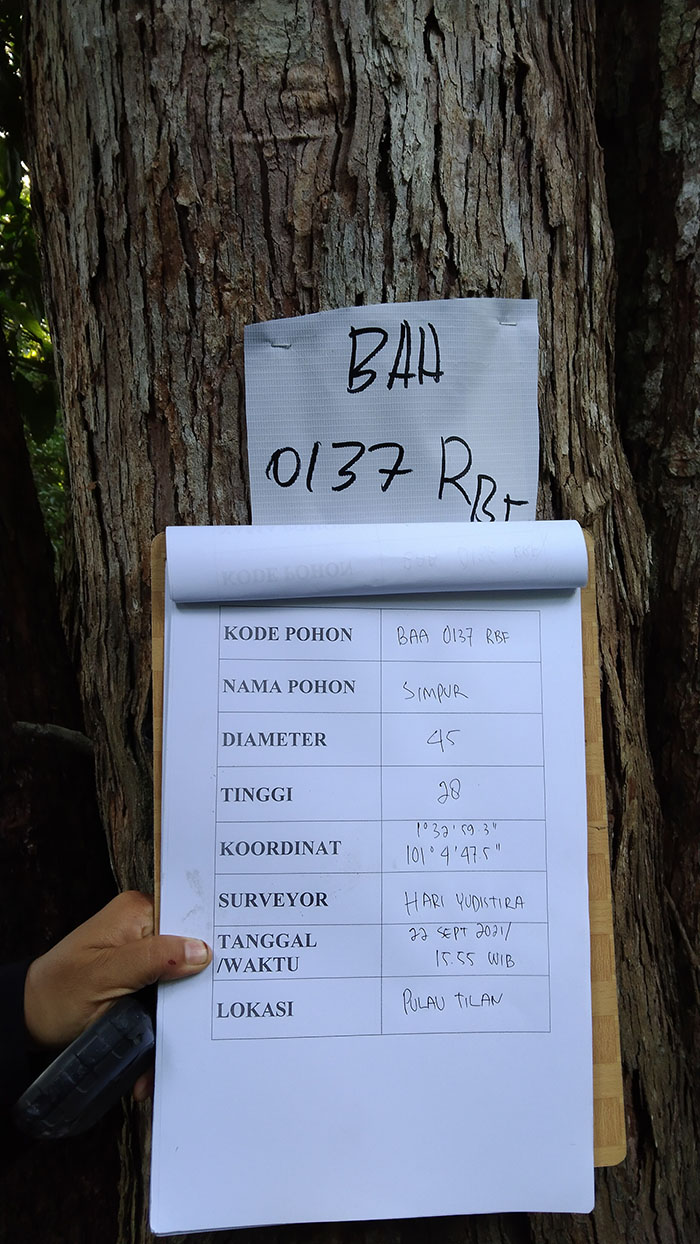 BAA
0137 RBF
KODE POHON BAA 0137 RBF
NAMA POHON SIMPUR
DIAMETER 45
TINGGI 28
KOORDINAT 1° 32' 59.3"
101° 4' 47.5"
SURVEYOR HARI YUDISTIRA
TANGGAL 22 SEPT 2021/
/WAKTU 15.55 WIB
LOKASI PULAU TILAN